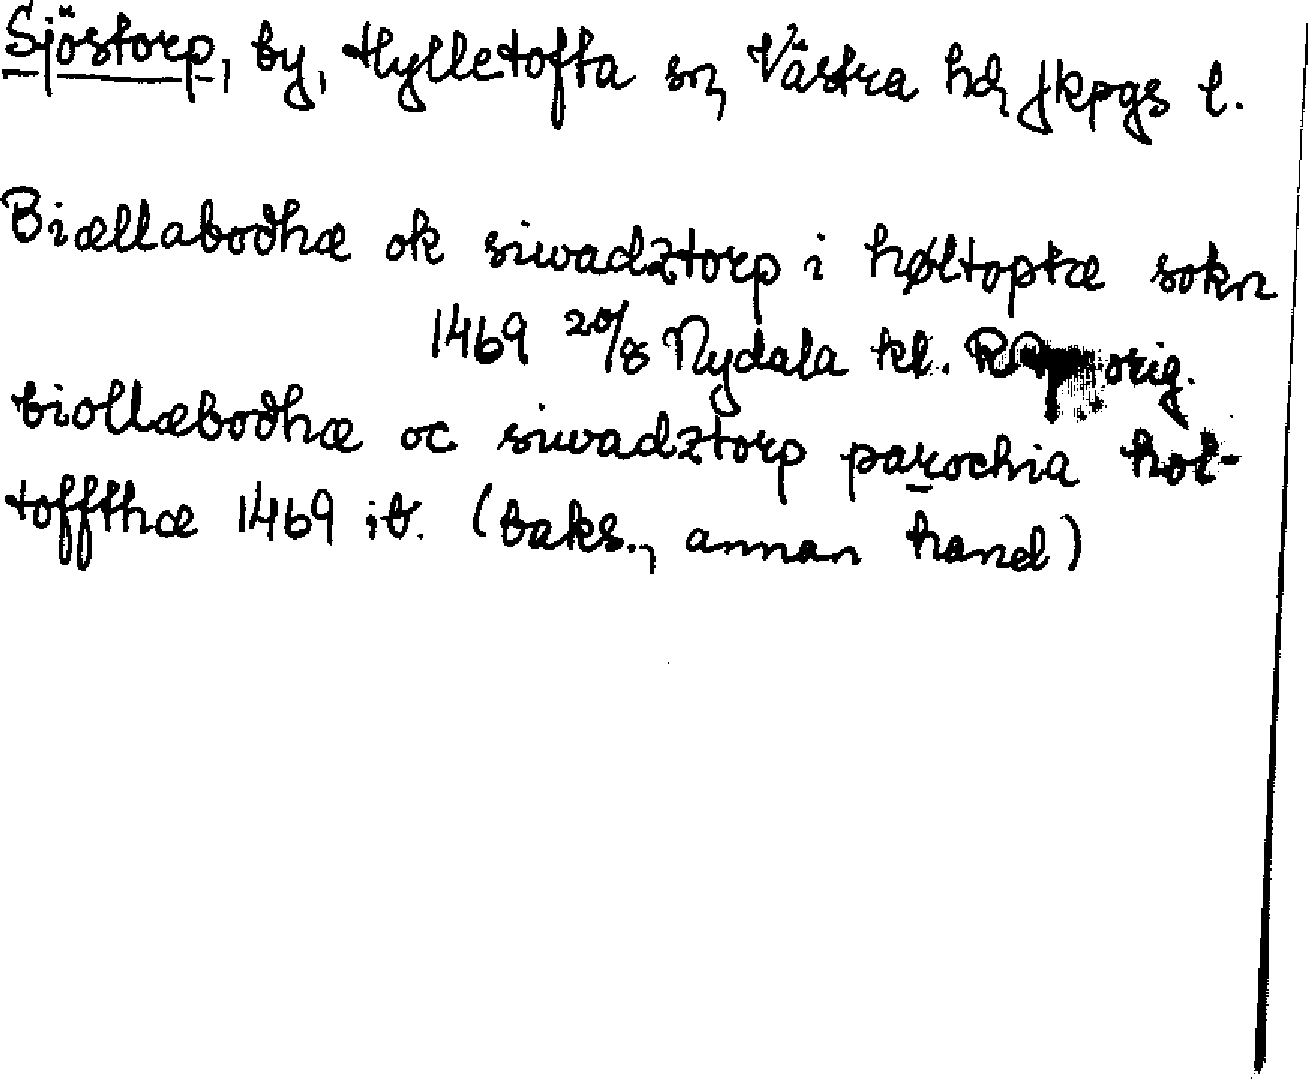 Sjöstorp, by, Hylletofta sn, Västra hd, Jkpgs l.
Biællabodhæ ok siwadztorp i høltoptæ sokn
1469 20/8 Nydala kl. orig.
biollæbodhæ oc siwadztorp parochia hol-
toffthæ 1469 ib. (baks., annan hand)